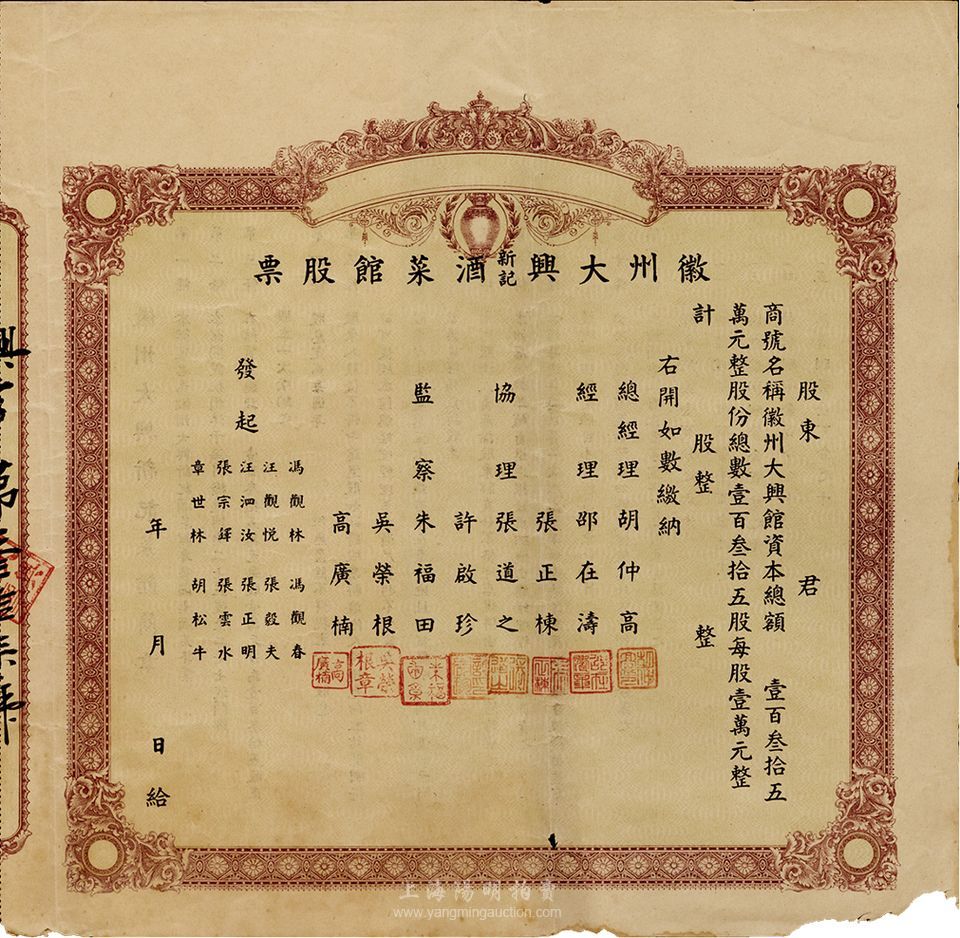 徽州大興新記酒菜館股票
股東 君
商號名稱徽州大興館資本總額 壹百叁拾五
萬元整股份總數壹百叁拾五股每股壹萬元整
計 股整 整
右開如數繳納
總經理胡仲高
經理邵在濤
張正棟
協理張道之
許啟珍
監察朱福田
吳榮根
高廣楠
發起
馮觀林 馮觀春
汪觀悦 張毅夫
汪泗汝 張正明
張宗鐸 張雲水
章世林 胡松牛
年 月 日給
吳榮根章
高廣楠
上海陽明拍賣
www.yangmingauction.com